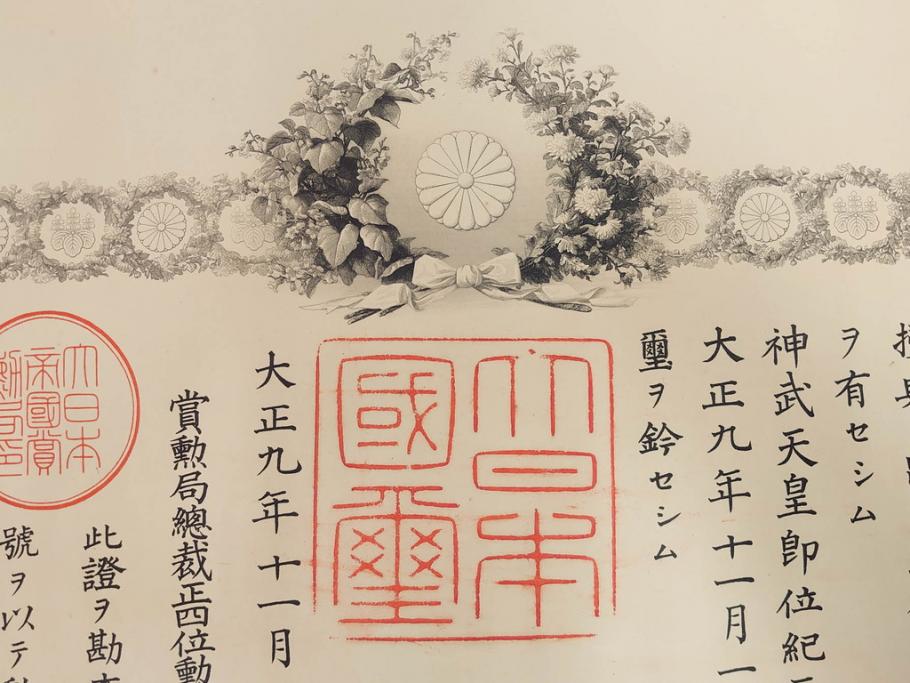 ヲ有セシム
神武天皇卽位紀
大正九年十一月一
璽ヲ鈐セシム
大日本
國璽
大正九年十一月
賞勳局總裁正四位勳
大日本
帝國賞
勳局印
此證ヲ勘
號ヲ以テ